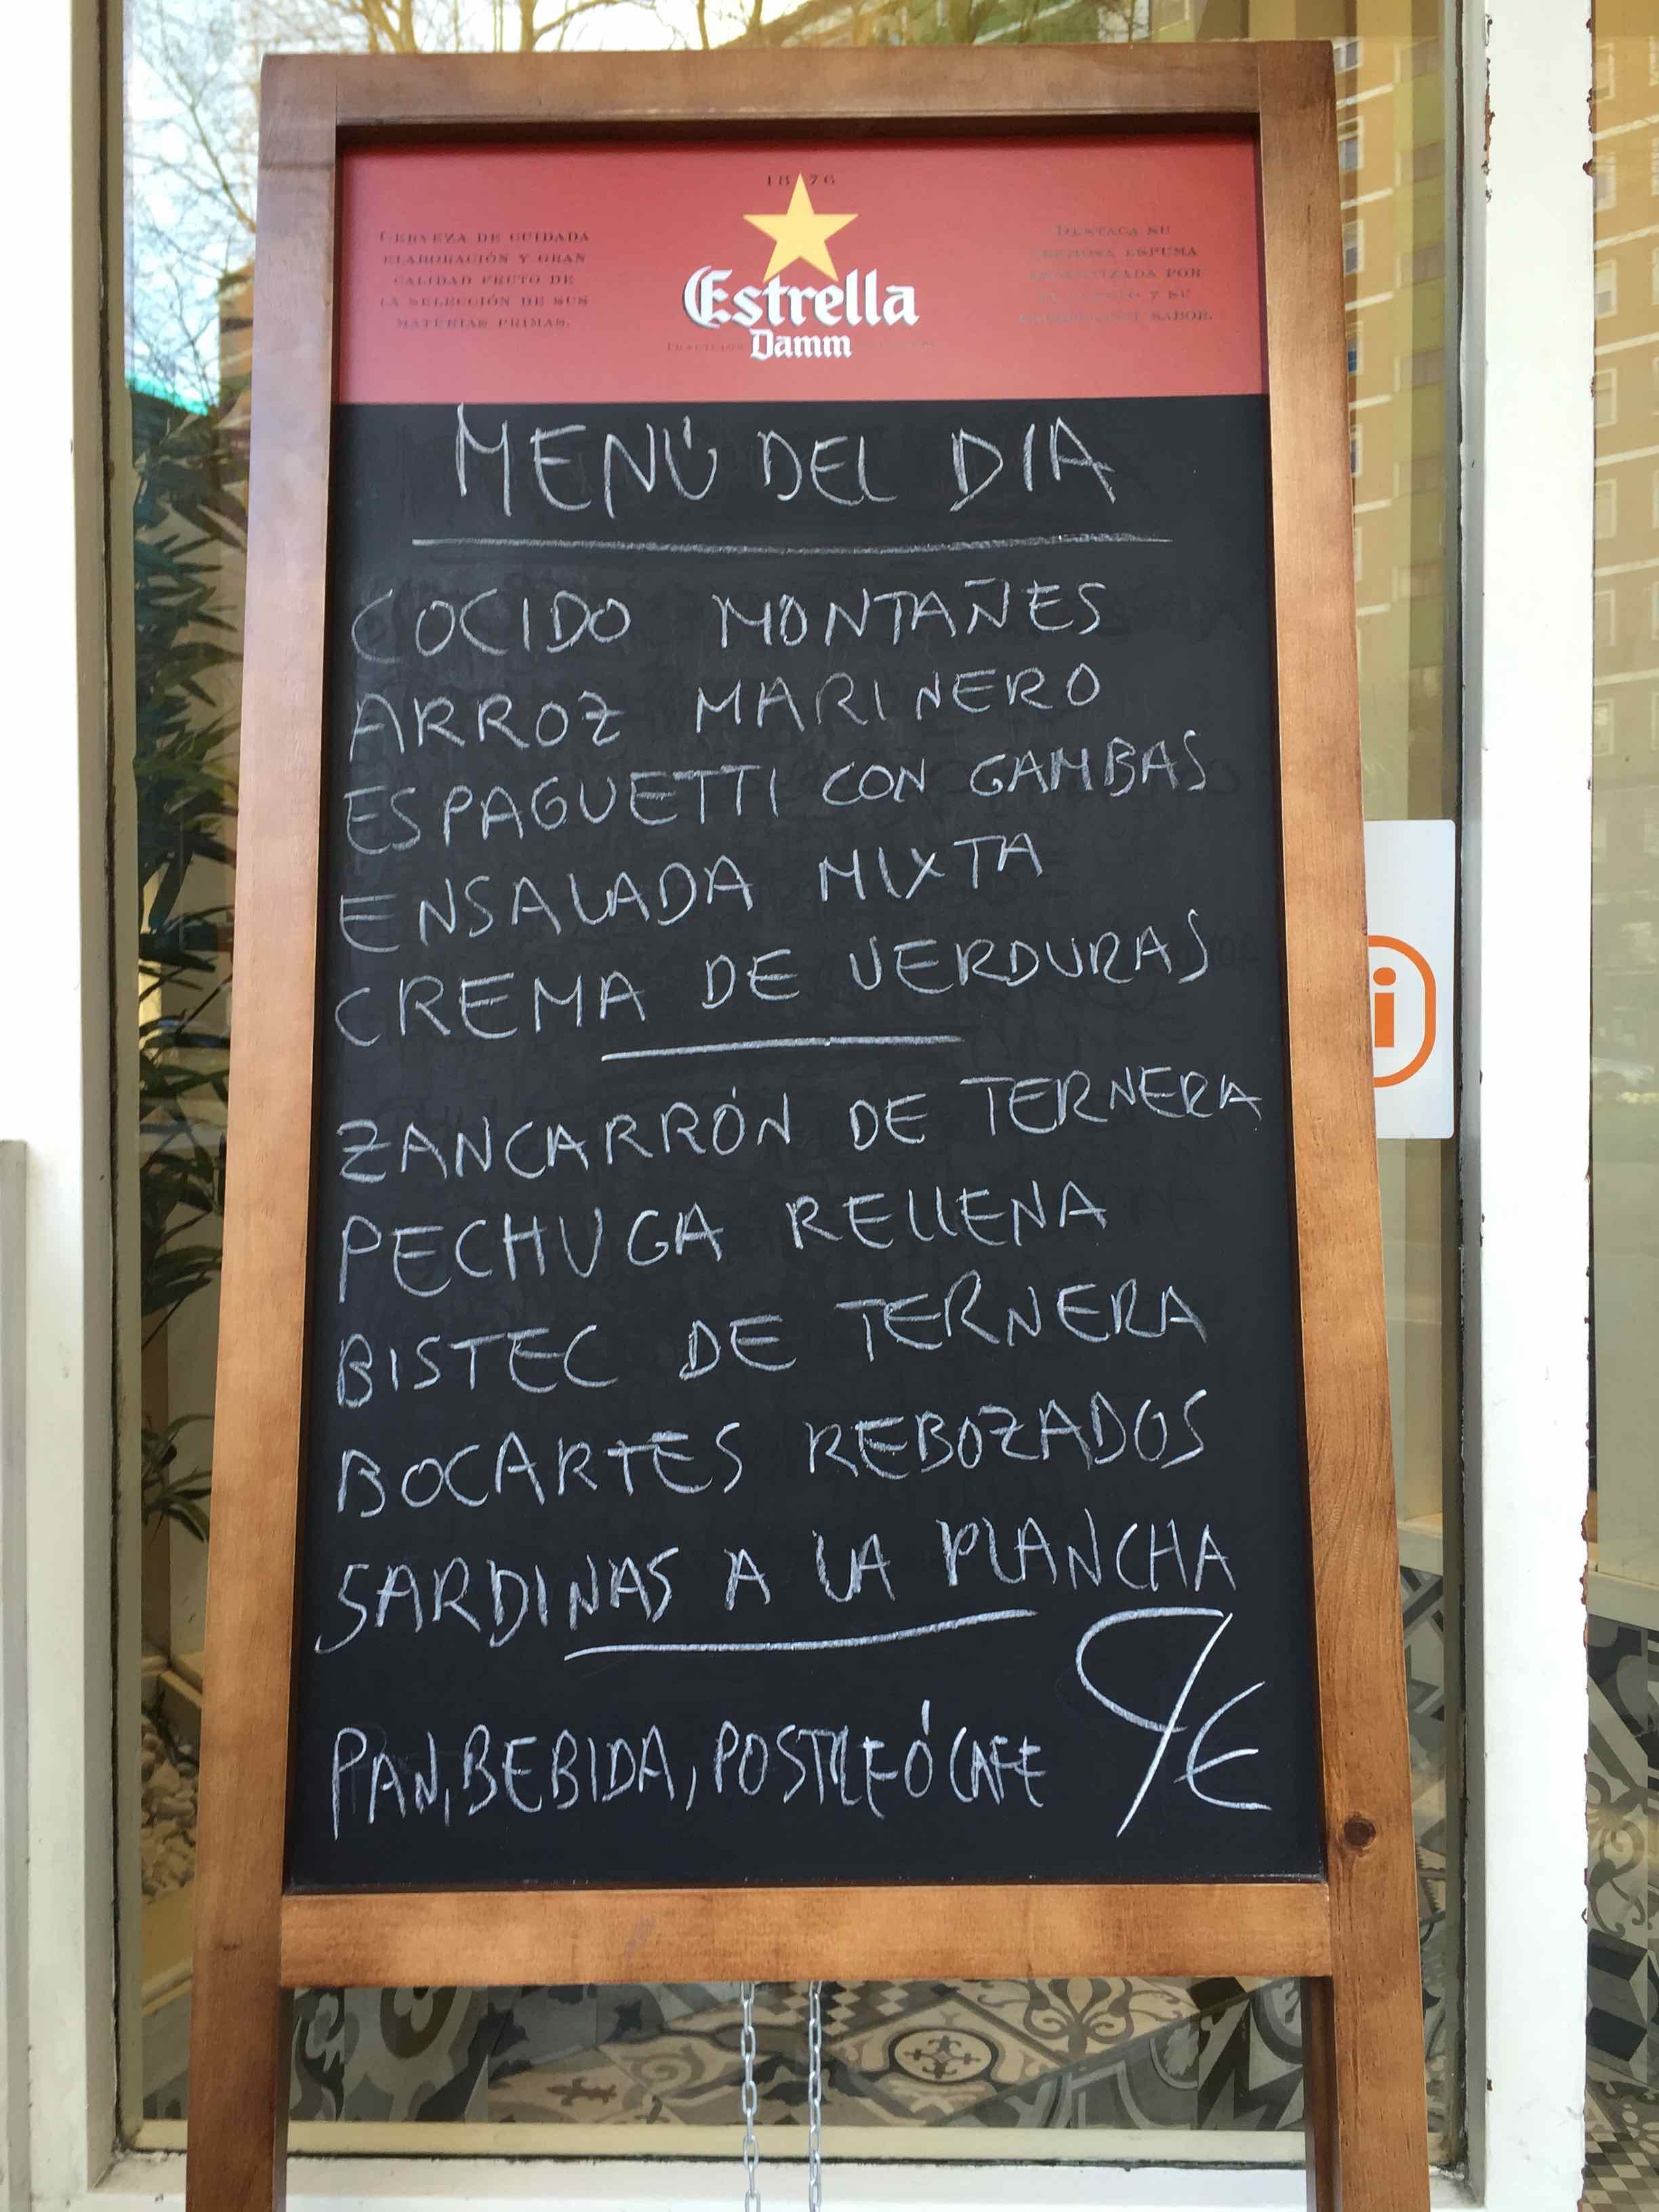 1876
Estrella
Damm
CERVEZA DE CUIDADA
ELABORACIÓN Y GRAN
CALIDAD FRUTO DE
LA SELECCIÓN DE SUS
MATERIAS PRIMAS.
DESTACA SU
CREMOSA ESPUMA
POR
Y SU
SABOR.
MENÚ DEL DIA
COCIDO MONTAÑES
ARROZ MARINERO
ESPAGUETTI CON GAMBAS
ENSALADA MIXTA
CREMA DE VERDURAS
ZANCARRÓN DE TERNERA
PECHUGA RELLENA
BISTEC DE TERNERA
BOCARTES REBOZADOS
SARDINAS A LA PLANCHA
PAN, BEBIDA, POSTRE Ó CAFE 9€
i